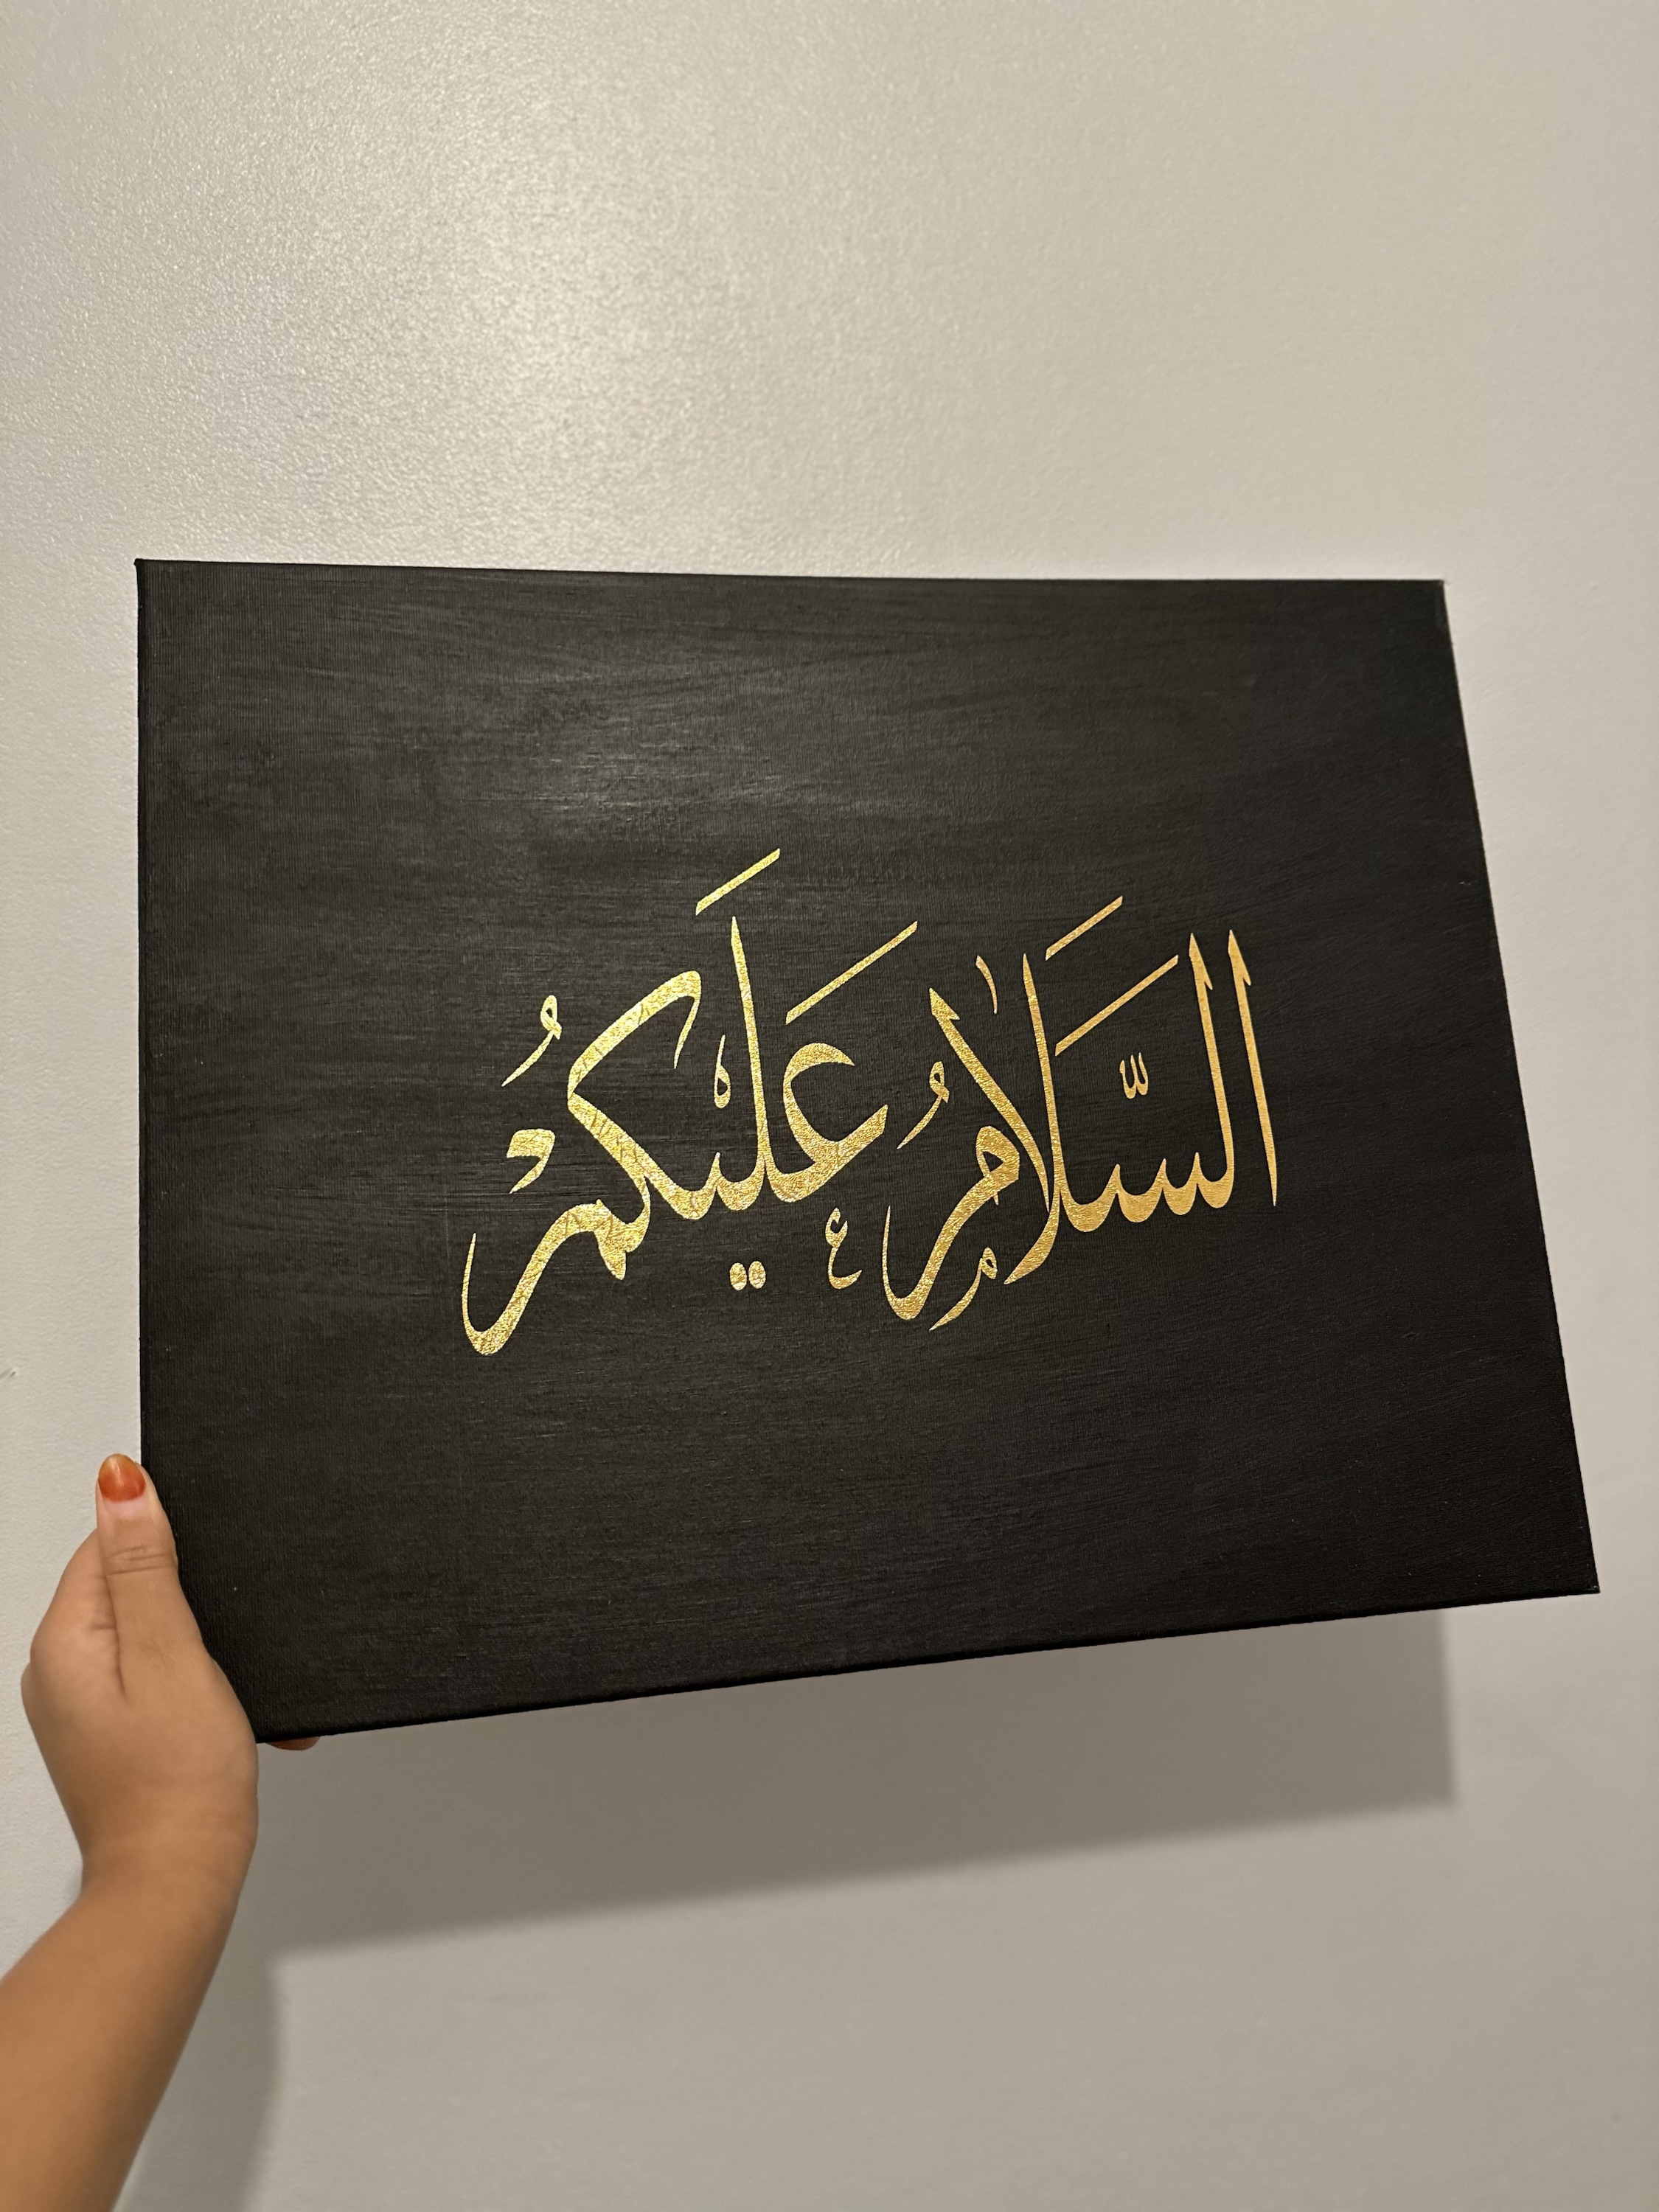 السَّلَامُ عَلَيكُمْ